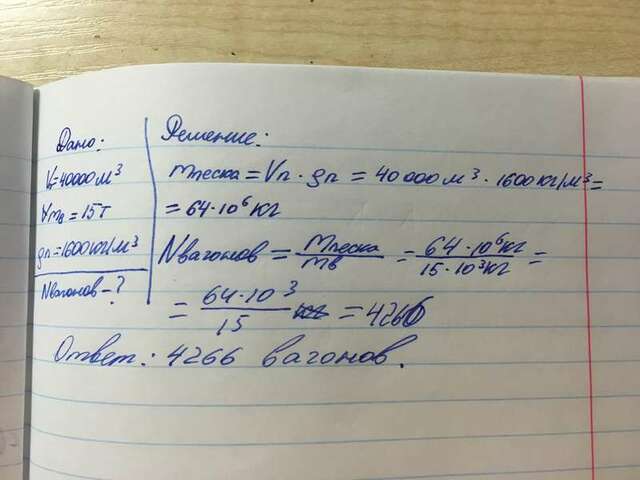 Дано:
V=40000м³
m₁=15т
ρп=1600кг/м³
Nвагонов-?
Решение:
mпеска = Vп · ρп = 40 000м³ · 1600кг/м³ =
= 64·10⁶кг
Nвагонов = mпеска/mв = 64·10⁶кг/15·10³кг =
= 64·10³/15 = 4266
Ответ: 4266 вагонов.